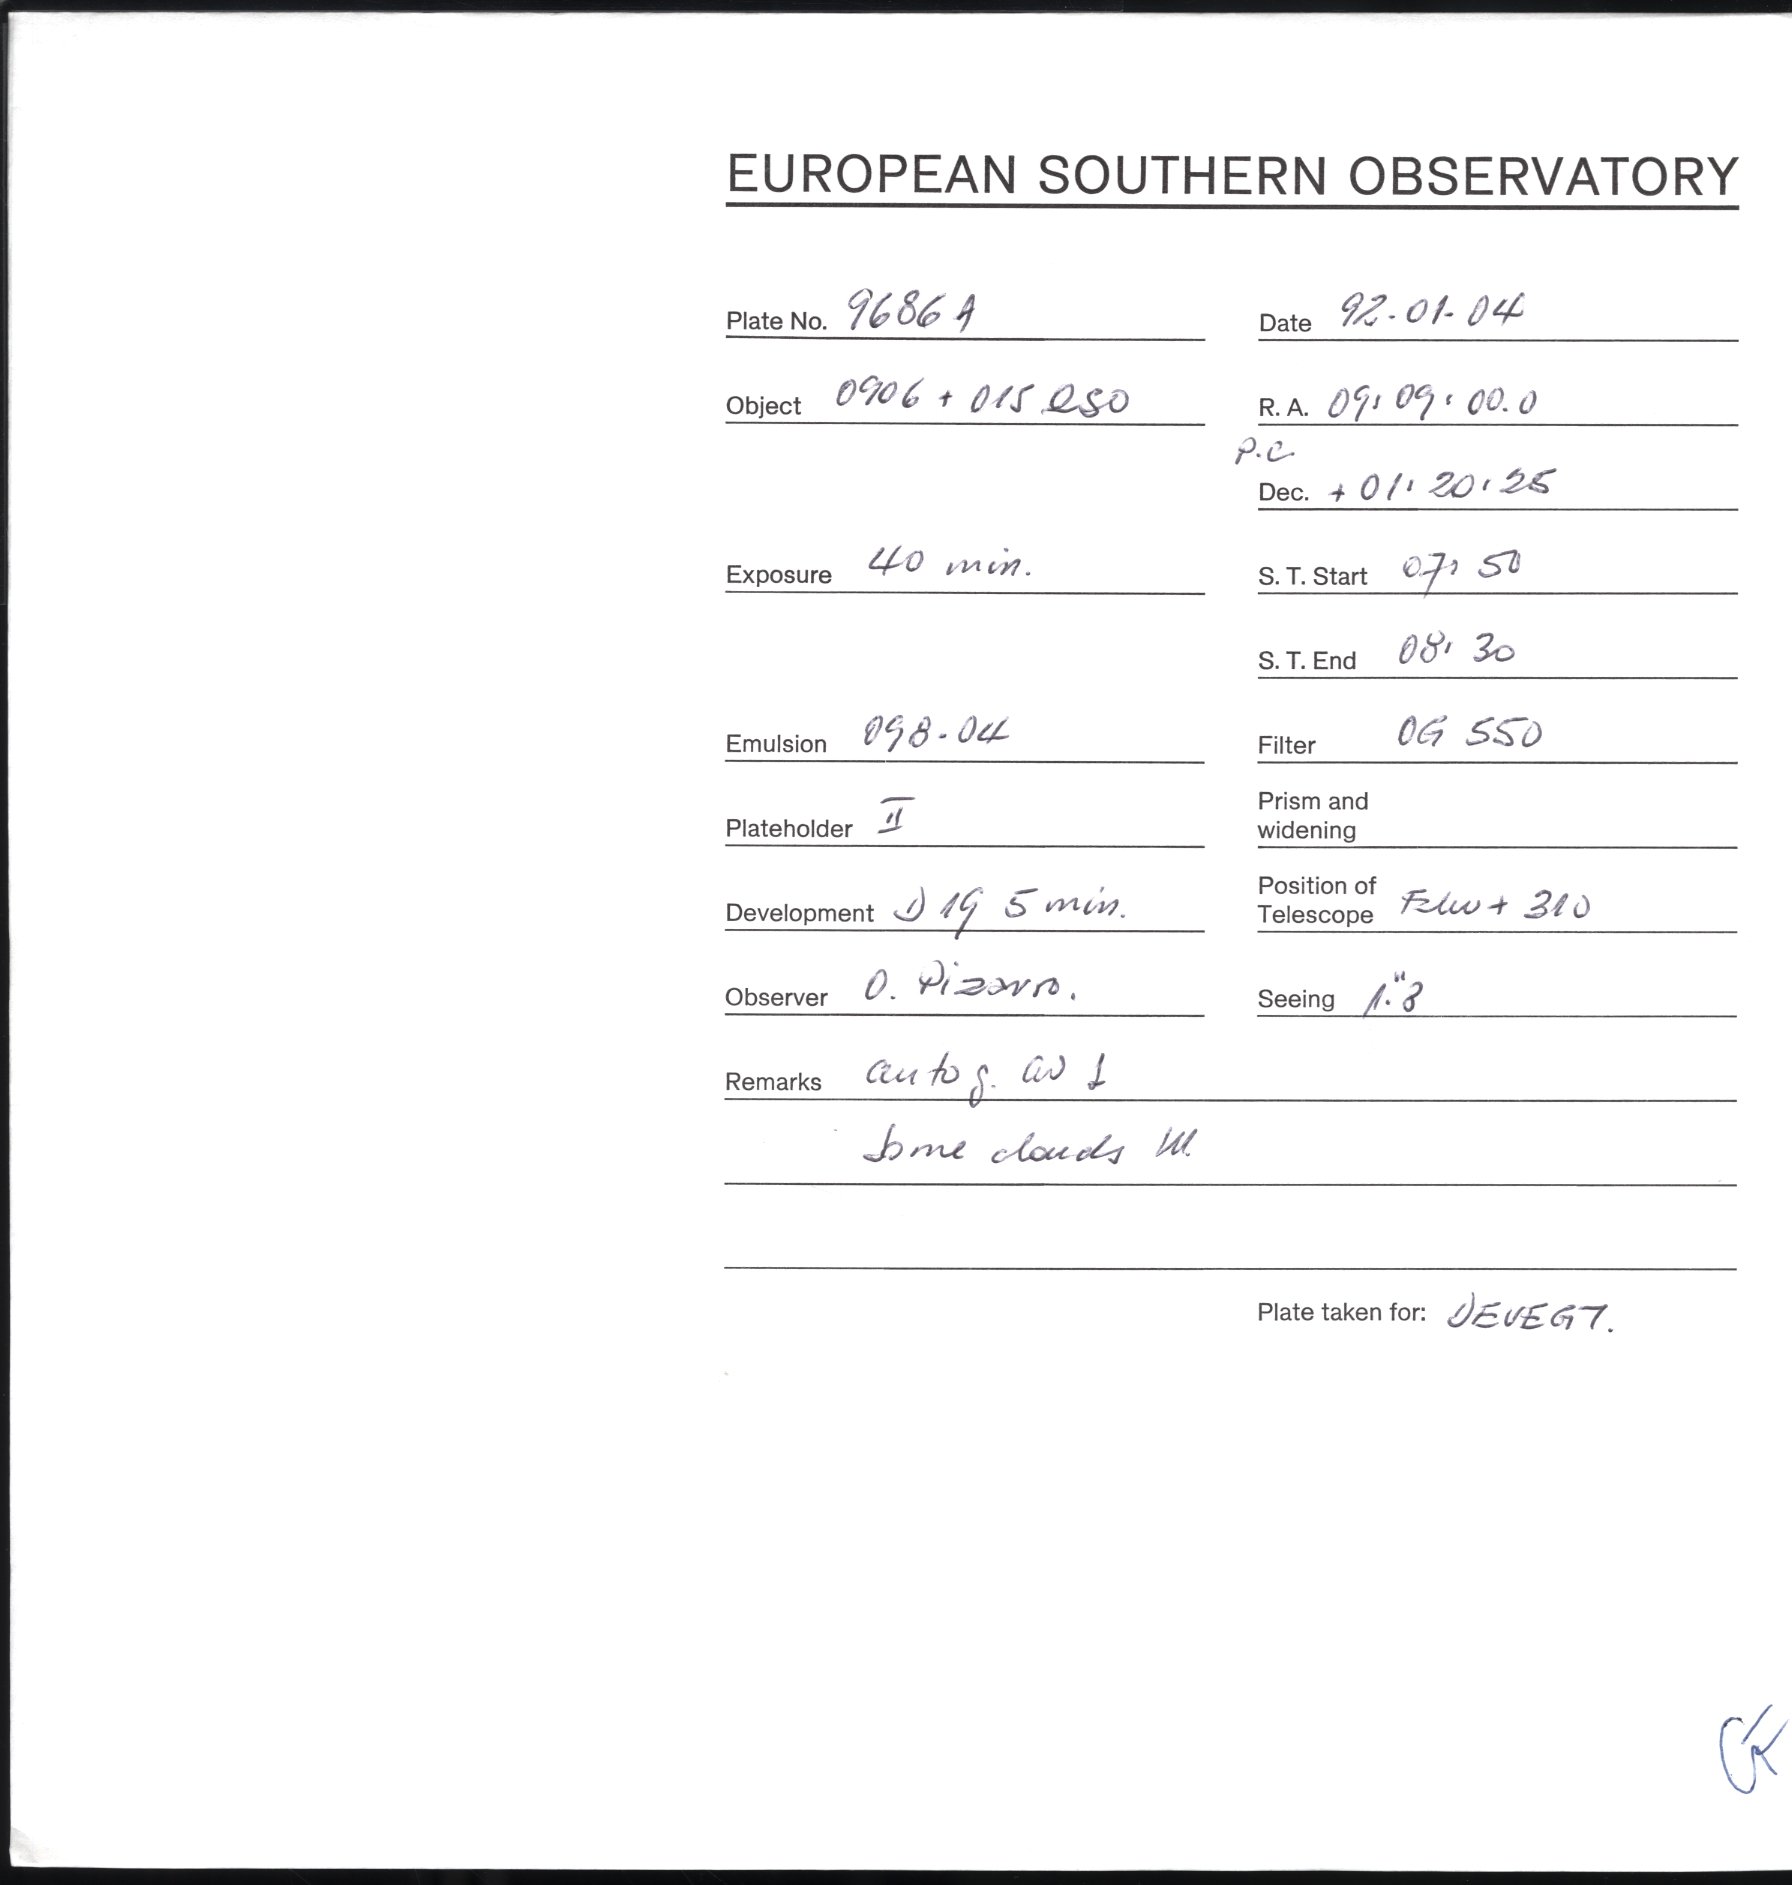 EUROPEAN SOUTHERN OBSERVATORY
Plate No. 9686 A Date 92-01-04
Object 0906 + 015 QSO R. A. 09: 09: 00.0
P.C.
Dec. + 01: 20: 25
Exposure 40 min. S. T. Start 07: 50
S. T. End 08: 30
Emulsion 098-04 Filter OG 550
Plateholder II Prism and
widening
Development D 19 5 min. Position of
Telescope + 310
Observer O. Pizarro. Seeing
Remarks autog.
Some clouds !!!
Plate taken for: DEVEGT.